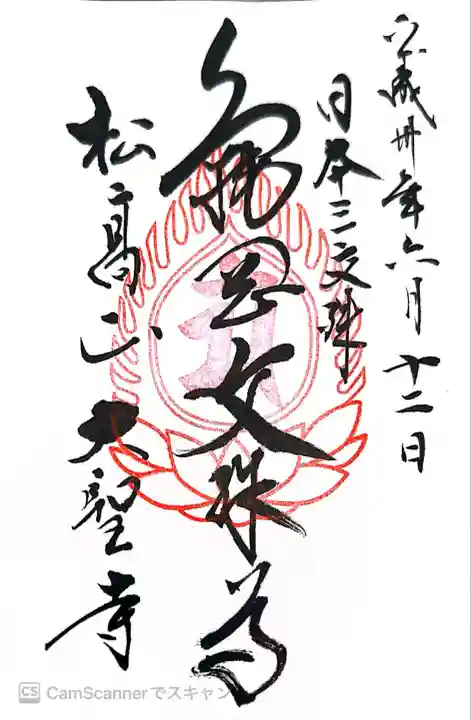 平成卅年六月十二日
日本三文殊
亀岡文殊
松高山 大聖寺
CS CamScannerでスキャン